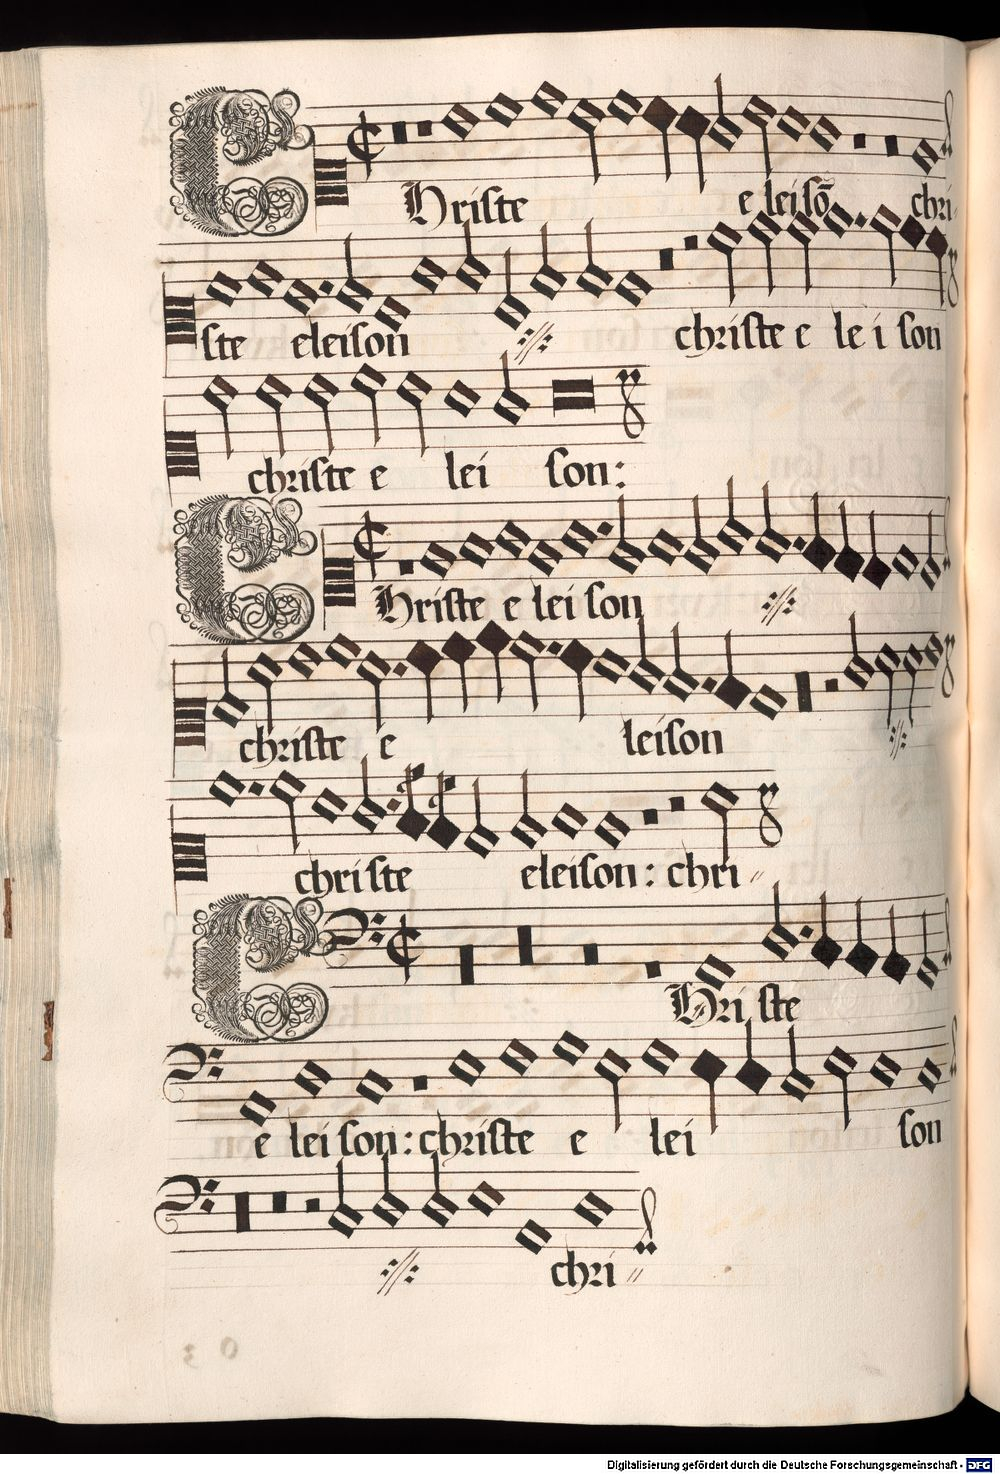 CHriste e leisō chri-
ste eleison :// christe e le i son
christe e lei son:
CHriste e lei son ://:
christe e leison ://:
christe eleison: chri //
CHri ste
e lei son: christe e lei son
://: chri //
Digitalisierung gefördert durch die Deutsche Forschungsgemeinschaft - DFG